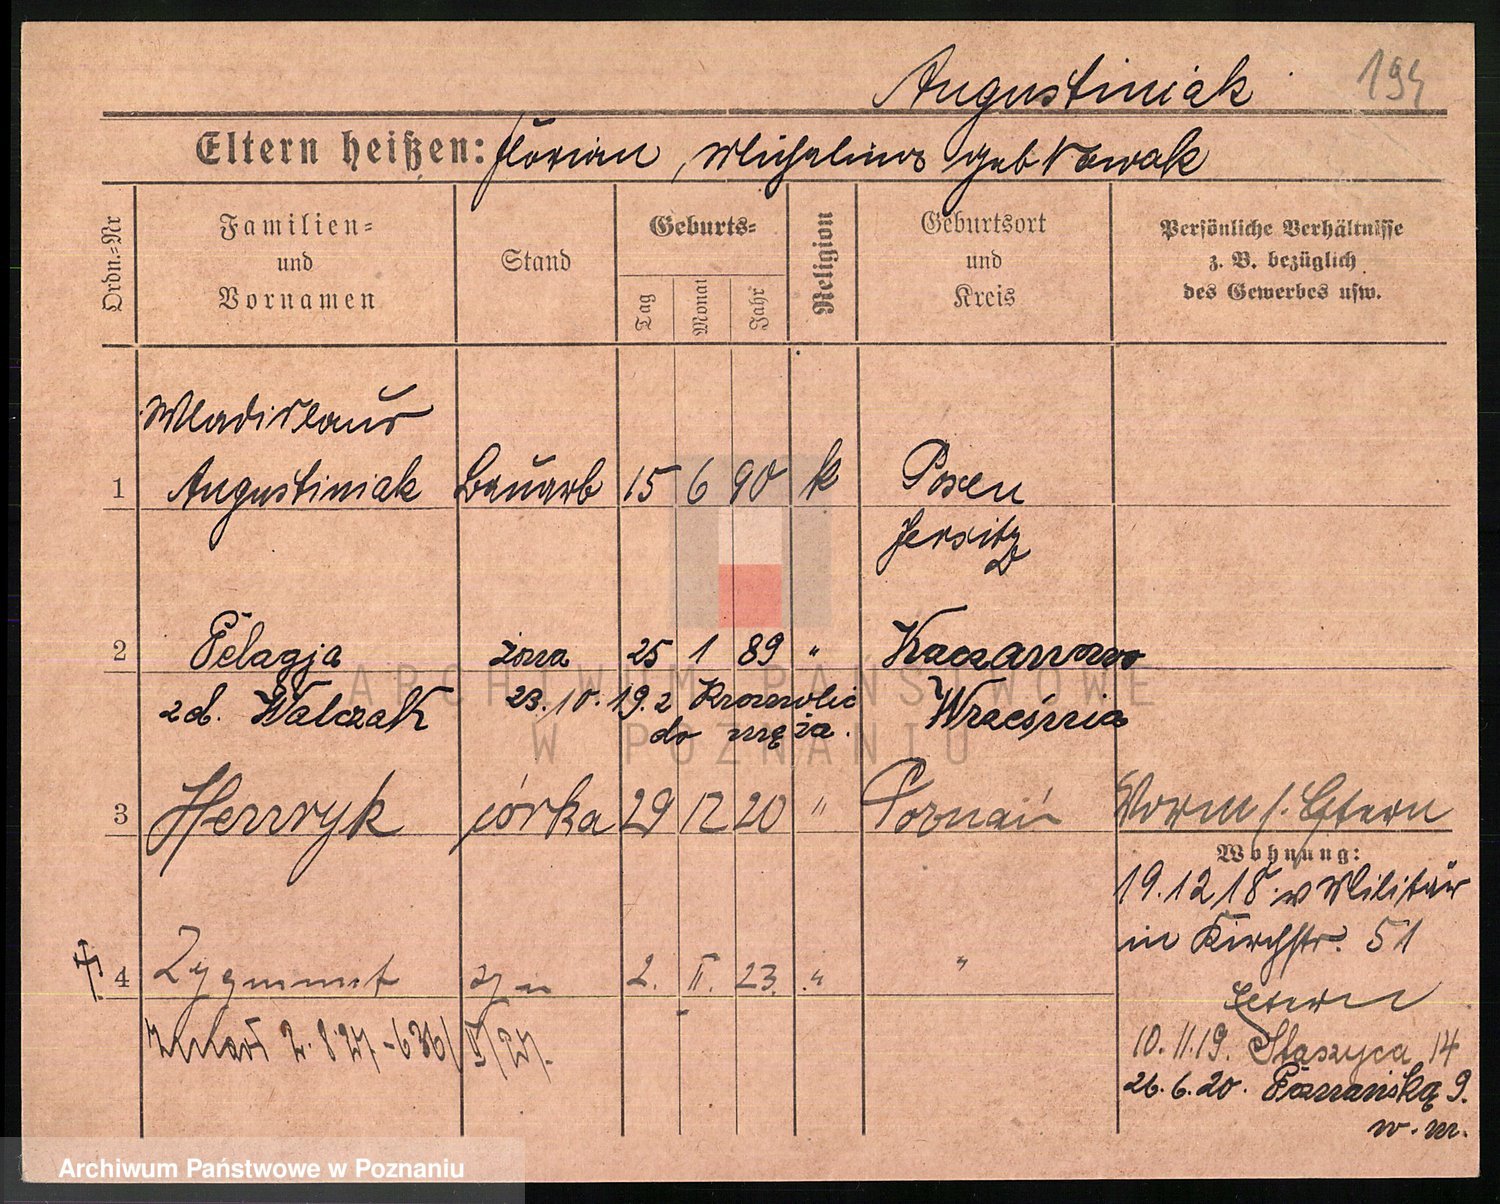 Augustiniak
194
Eltern heißen: Florian, Michalina geb Nowak
Ordn.=Nr
Familien=
und
Vornamen
Stand
Geburts=
Tag
Monat
Jahr
Religion
Geburtsort
und
Kreis
Persönliche Verhältnisse
z. B. bezüglich
des Gewerbes usw.
Wladislaus
1 Augustiniak Bauarb 15 6 90 k Posen
Jersitz
2 Pelagja żona 25 1 89 " Kaczanowo
zd. Walczak 23.10.19.2 Września
do męża.
3 Henryk córka 29 12 20 " Poznań Worm s. Eltern
Wohnung:
19.12 18. v Militär
in Kirchstr. 51
Eltern
4 Zygmunt syn 2. II. 23. " "
zmarł 2.8.27. - 636/IV/27.
10.11.19. Staszyca 14
26.6.20. Poznańska 9.
w. m.
ARCHIWUM PAŃSTWOWE
W POZNANIU
Archiwum Państwowe w Poznaniu